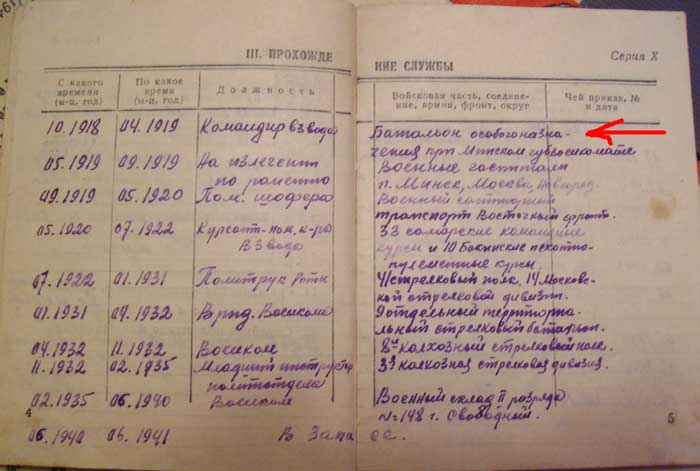 III. ПРОХОЖДЕ
С какого времени (м-ц, год)
По какое время (м-ц, год)
Должность
10.1918 04.1919 Командир взвода
05.1919 09.1919 На излечении
по ранению
09.1919 05.1920 Пом. шофера
05.1920 07.1922 Курсант-пом. к-ра
взвода
07.1922 01.1931 Политрук роты
01.1931 04.1932 Врид. Военкома
04.1932 11.1932 Военком
11.1932 02.1935 Младший инструктор
политотдела
02.1935 06.1940 Военком
06.1940 06.1941 В запа
4
НИЕ СЛУЖБЫ
Серия X
Войсковая часть, соедине-
ние, армия, фронт, округ
Чей приказ, №
и дата
Батальон особого назна-
чения при Минском губвоенкомате
Военные госпитали
г. Минск, Москва, Новгород.
Военный санитарный
транспорт Восточный фронт.
33 самарские командные
курсы и 10 Бакинские пехотно-
пулеметные курсы.
41 стрелковый полк, 14 Московс-
кой стрелковой дивизии.
9 отдельный территориа-
льный стрелковый батальон.
8й колхозный стрелковый полк.
3я колхозная стрелковая дивизия.
Военный склад II разряда
№ 148 г. Свободный.
се.
5